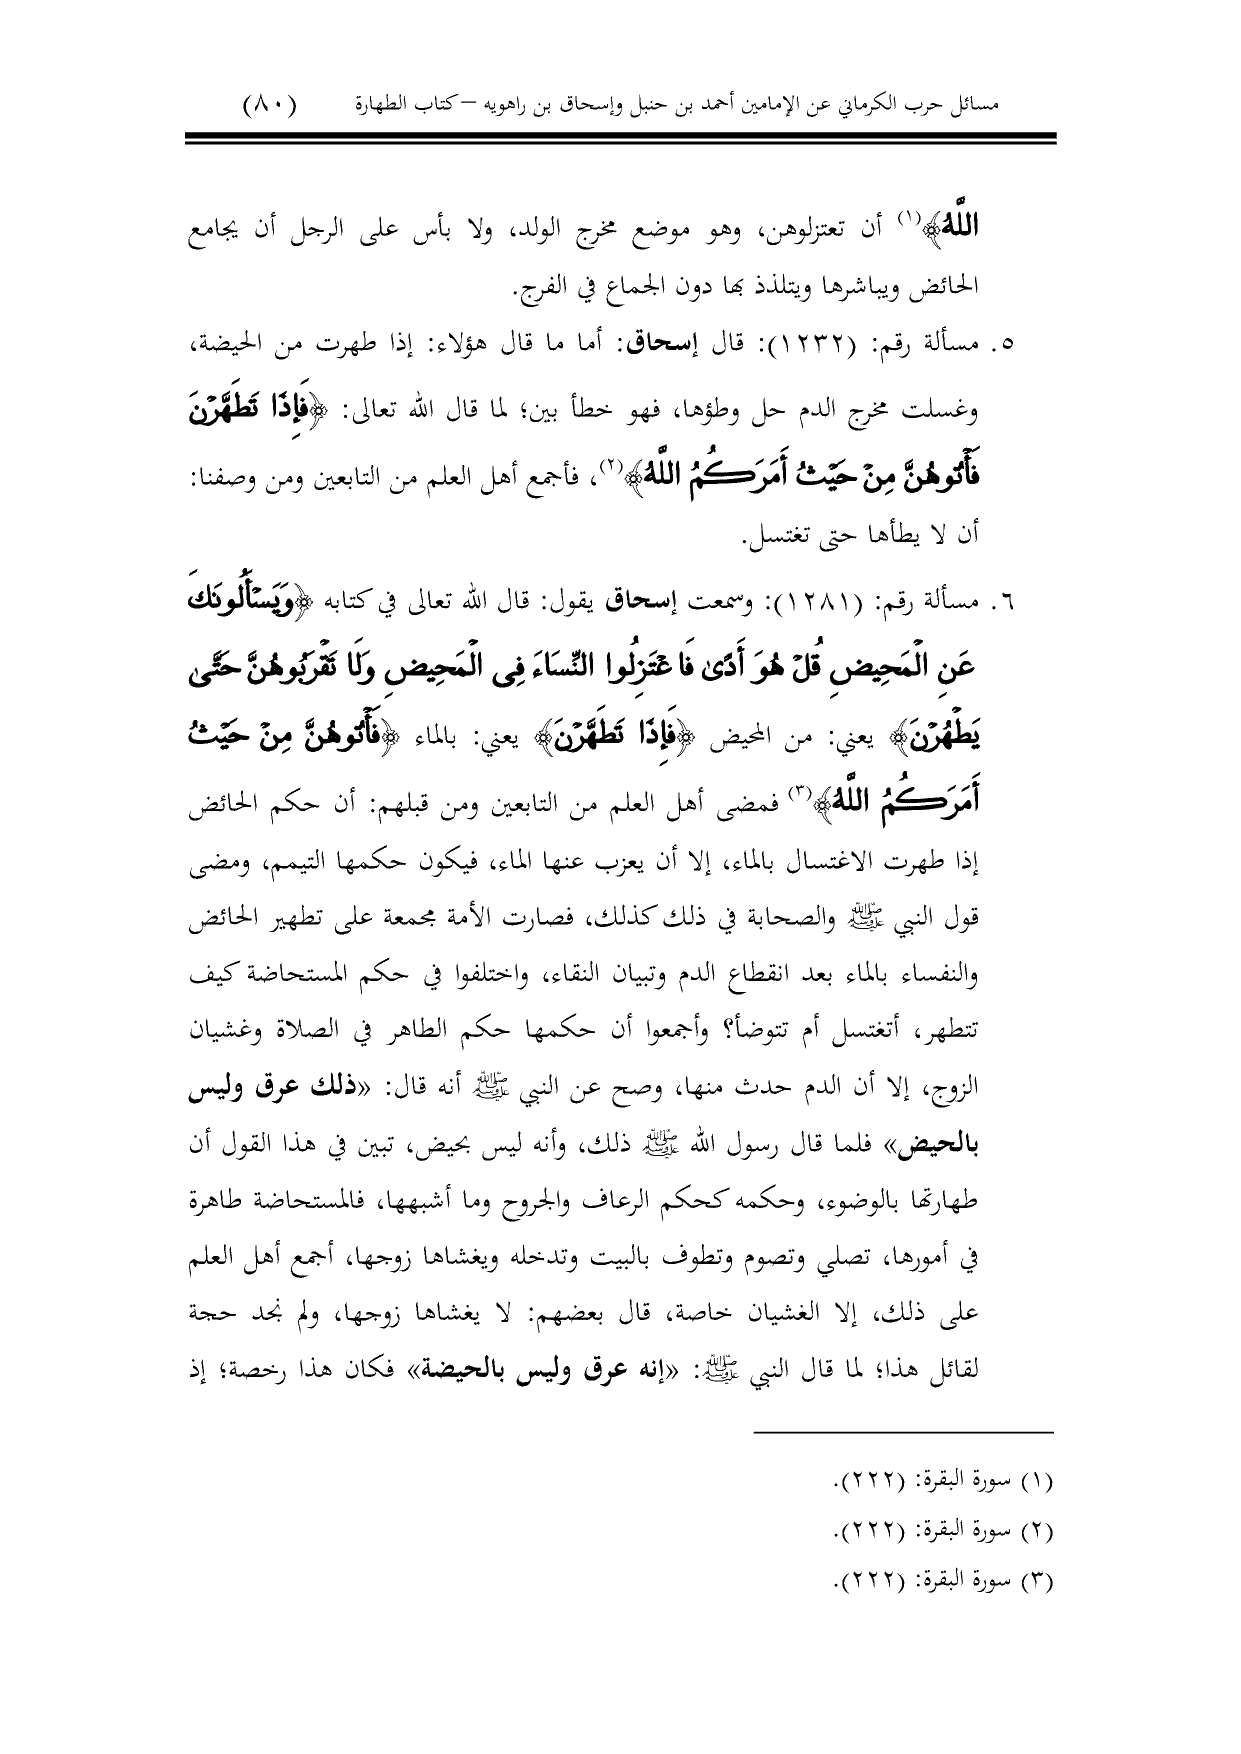 مسائل حرب الكرماني عن الإمامين أحمد بن حنبل وإسحاق بن راهويه – كتاب الطهارة (٨٠)
اللَّهُ﴾(١) أن تعتزلوهن، وهو موضع مخرج الولد، ولا بأس على الرجل أن يجامع
الحائض ويباشرها ويتلذذ بها دون الجماع في الفرج.
٥. مسألة رقم: (١٢٣٢): قال إسحاق: أما ما قال هؤلاء: إذا طهرت من الحيضة،
وغسلت مخرج الدم حل وطؤها، فهو خطأ بين؛ لما قال الله تعالى: ﴿فَإِذَا تَطَهَّرْنَ
فَأْتُوهُنَّ مِنْ حَيْثُ أَمَرَكُمُ اللَّهُ﴾(٢)، فأجمع أهل العلم من التابعين ومن وصفنا:
أن لا يطأها حتى تغتسل.
٦. مسألة رقم: (١٢٨١): وسمعت إسحاق يقول: قال الله تعالى في كتابه ﴿وَيَسْأَلُونَكَ
عَنِ الْمَحِيضِ قُلْ هُوَ أَذًى فَاعْتَزِلُوا النِّسَاءَ فِي الْمَحِيضِ وَلَا تَقْرَبُوهُنَّ حَتَّى
يَطْهُرْنَ﴾ يعني: من المحيض ﴿فَإِذَا تَطَهَّرْنَ﴾ يعني: بالماء ﴿فَأْتُوهُنَّ مِنْ حَيْثُ
أَمَرَكُمُ اللَّهُ﴾(٣) فمضى أهل العلم من التابعين ومن قبلهم: أن حكم الحائض
إذا طهرت الاغتسال بالماء، إلا أن يعزب عنها الماء، فيكون حكمها التيمم، ومضى
قول النبي ﷺ والصحابة في ذلك كذلك، فصارت الأمة مجمعة على تطهير الحائض
والنفساء بالماء بعد انقطاع الدم وتبيان النقاء، واختلفوا في حكم المستحاضة كيف
تتطهر، أتغتسل أم تتوضأ؟ وأجمعوا أن حكمها حكم الطاهر في الصلاة وغشيان
الزوج، إلا أن الدم حدث منها، وصح عن النبي ﷺ أنه قال: «ذلك عرق وليس
بالحيض» فلما قال رسول الله ﷺ ذلك، وأنه ليس بحيض، تبين في هذا القول أن
طهارتها بالوضوء، وحكمه كحكم الرعاف والجروح وما أشبهها، فالمستحاضة طاهرة
في أمورها، تصلي وتصوم وتطوف بالبيت وتدخله ويغشاها زوجها، أجمع أهل العلم
على ذلك، إلا الغشيان خاصة، قال بعضهم: لا يغشاها زوجها، ولم نجد حجة
لقائل هذا؛ لما قال النبي ﷺ: «إنه عرق وليس بالحيضة» فكان هذا رخصة؛ إذ
(١) سورة البقرة: (٢٢٢).
(٢) سورة البقرة: (٢٢٢).
(٣) سورة البقرة: (٢٢٢).